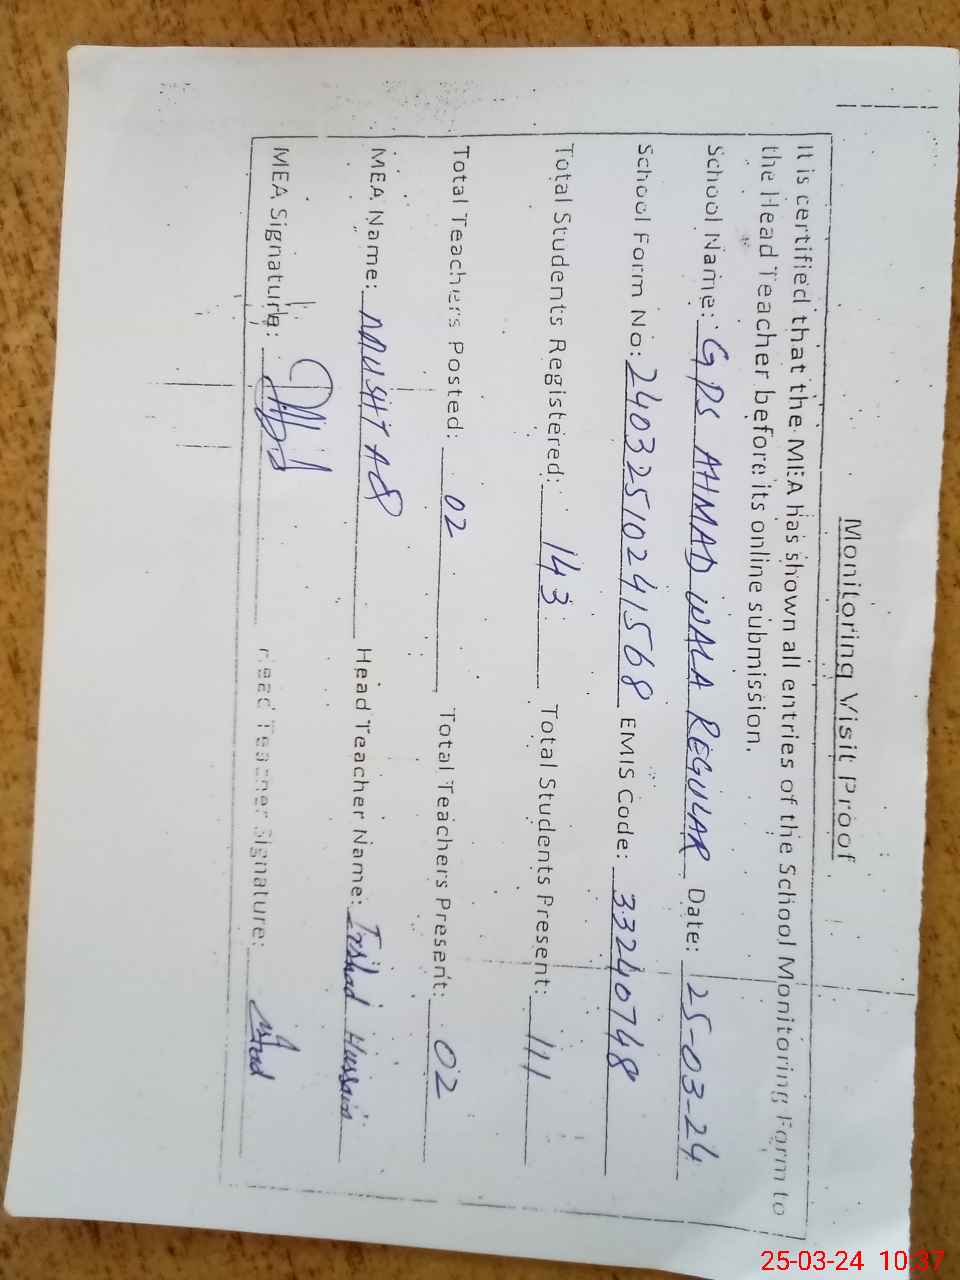 Monitoring Visit Proof
It is certified that the MEA has shown all entries of the School Monitoring Form to
the Head Teacher before its online submission.
School Name: GPS AHMAD WALA REGULAR Date: 25-03-24
School Form No: 24032510241568 EMIS Code: 33240748
Total Students Registered: 143 Total Students Present: 111
Total Teachers Posted: 02 Total Teachers Present: 02
MEA Name: MUSHTAQ Head Teacher Name: Irshad Hussain
MEA Signature: Head Teacher Signature: Irshad
25-03-24 10:37